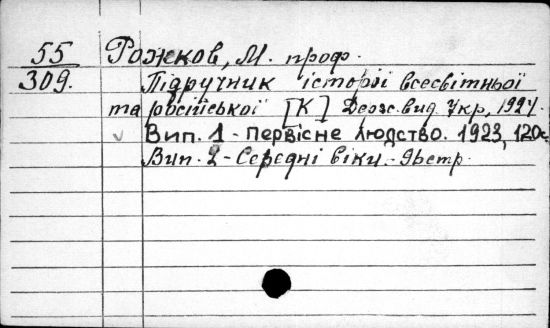 55 Рожков, М. проф.
309. Підручник історії всесвітньої
та російської [К] Держ. вид. Укр, 1924.
Вип. 1 - Первісне людство. 1923, 120с
Вип. 2 - Середні віки. - стр.